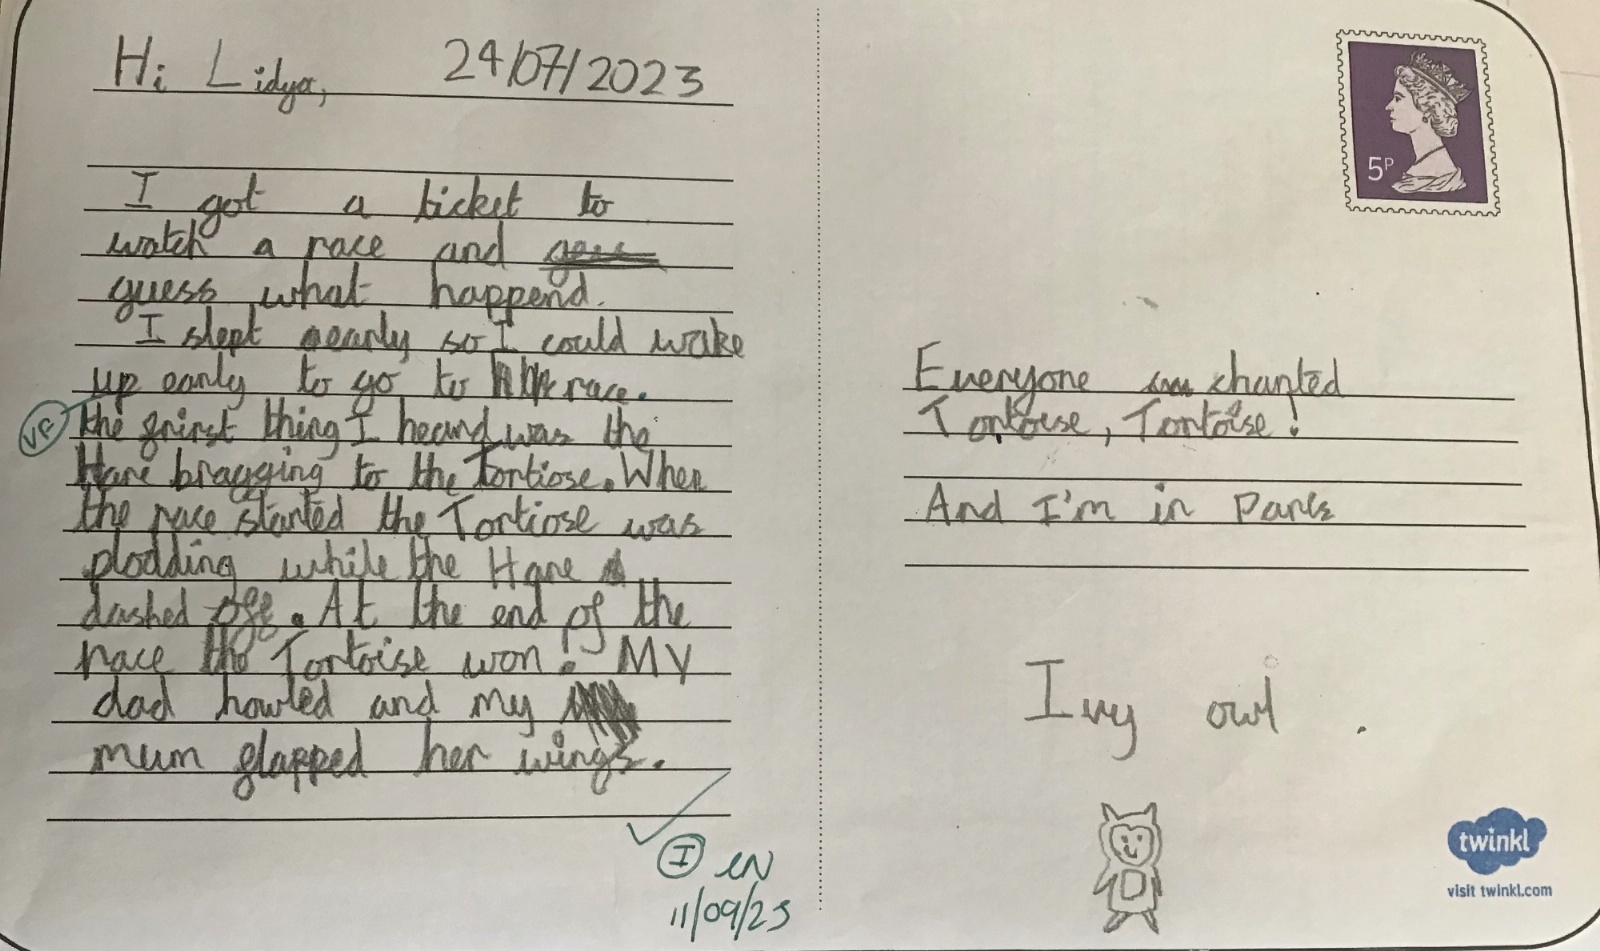 Hi Lidya, 24/07/2023
I got a ticket to
watch a race and
guess what happend.
I slept early so I could wake
up early to go to race.
the first thing I heard was the
Hare bragging to the Tortiose. When
the race started the Tortiose was
plodding while the Hare
dashed off. At the end of the
race the Tortoise won! My
dad howled and my
mum flapped her wings.
VF
I
11/09/23
5P
Everyone chanted
Tortoise, Tortoise!
And I'm in Paris
Ivy owl.
twinkl
visit twinkl.com